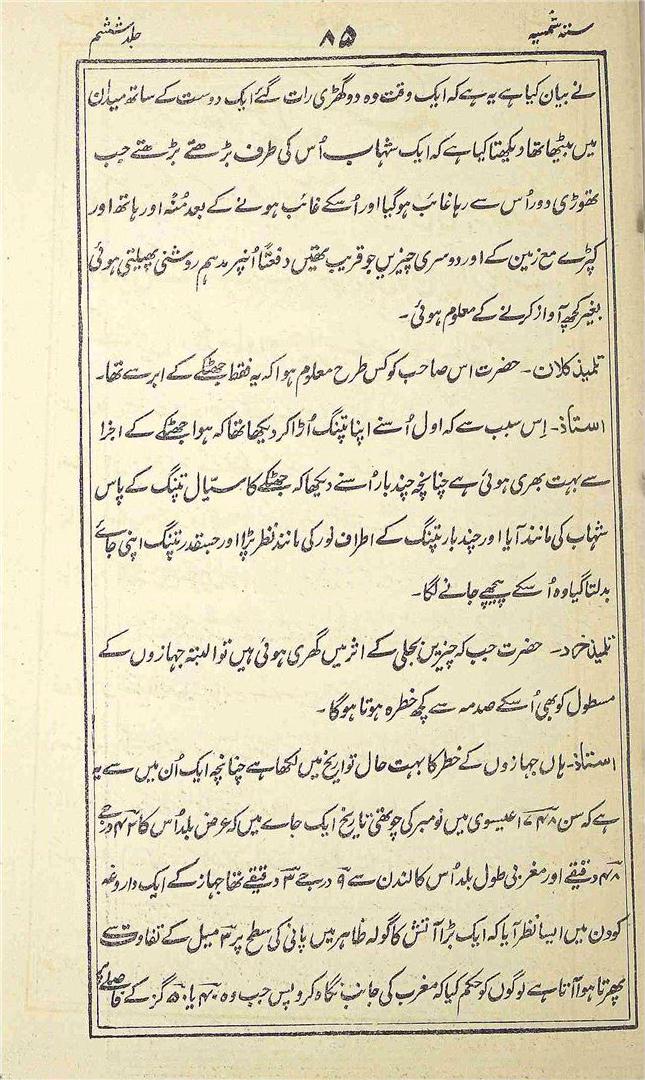 ستہ شمسیہ ۸۵ جلد ششم
نے بیان کیا ہے یہ ہے کہ ایک وقت وہ دو گھڑی رات گئے ایک دوست کے ساتھ میدان
میں بیٹھا تھا دیکھتا کیا ہے کہ ایک شہاب اُس کی طرف بڑھتے بڑھتے جب
تھوڑی دور اُس سے رہا غائب ہو گیا اور اُسکے غائب ہونے کے بعد مُنْہ اور ہاتھ اور
کپڑے مع زمین کے اور دوسری چیزیں جو قریب تھیں دفعتاً اُنپر مدھم روشنی پھیلتی ہوئی
بغیر کچھ آواز کرنے کے معلوم ہوئی ۔
تلمیذ کلان ۔ حضرت اس صاحب کو کس طرح معلوم ہوا کہ یہ فقط جھٹکے کے ابر سے تھا ۔
استاذ ۔ اِس سبب سے کہ اول اُسنے اپنا پتنگ اُڑا کر دیکھا تھا کہ ہوا جھٹکے کے اجزا
سے بہت بھری ہوئی ہے چنانچہ چند بار اُسنے دیکھا کہ جھٹکے کا سیّال پتنگ کے پاس
شہاب کی مانند آیا اور چند بار پتنگ کے اطراف نور کی مانند نظر پڑا اور جسقدر پتنگ اپنی جائے
بدلتا گیا وہ اُسکے پیچھے جانے لگا ۔
تلمیذ خرد ۔ حضرت جب کہ چیزیں بجلی کے اثر میں گھری ہوئی ہیں تو البتہ جہازوں کے
مسطول کو بھی اُسکے صدمہ سے کچھ خطرہ ہوتا ہوگا ۔
استاذ ۔ ہاں جہازوں کے خطر کا بہت حال تواریخ میں لکھا ہے چنانچہ ایک اُن میں سے یہ
ہے کہ سن ۱۷۴۸ عیسوی میں نومبر کی چوتھی تاریخ ایک جاے میں کہ عرض بلد اُس کا ۴۲ درجے
۴۸ دقیقے اور مغربی طول بلد اُس کا لندن سے ۹ درجے ۳ دقیقے تھا جہاز کے ایک داروغہ
کو دن میں ایسا نظر آیا کہ ایک بڑا آتش کا گولہ ظاہر میں پانی کی سطح پر ۳ میل کے تفاوت سے
پھرتا ہوا آتا ہے لوگوں کو حکم کیا کہ مغرب کی جانب نگاہ کرو پس جب وہ ۴۰ یا ۵۰ گز کے فاصلے